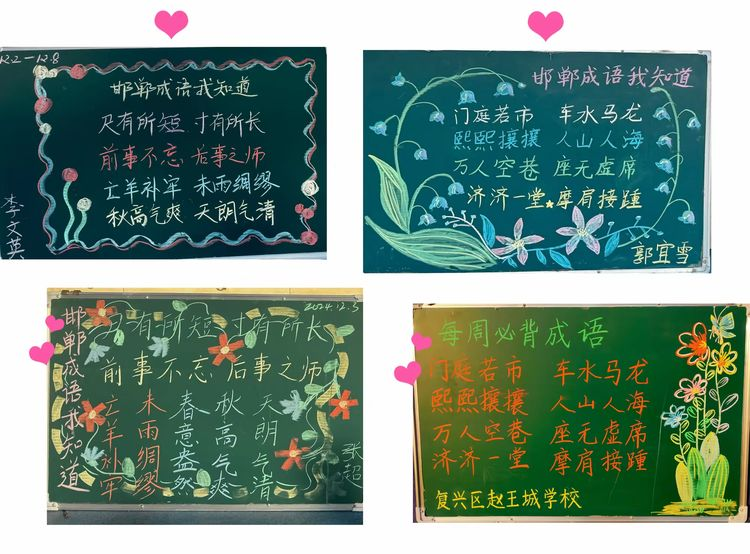 12.2-12.8
邯郸成语我知道
尺有所短 寸有所长
前事不忘 后事之师
亡羊补牢 未雨绸缪
秋高气爽 天朗气清
李文英
邯郸成语我知道
门庭若市 车水马龙
熙熙攘攘 人山人海
万人空巷 座无虚席
济济一堂 摩肩接踵
郭宜雪
2024.12.5
邯郸成语我知道
尺有所短 寸有所长
前事不忘 后事之师
亡羊补牢
未雨绸缪
春意盎然
秋高气爽
天朗气清
张超
每周必背成语
门庭若市 车水马龙
熙熙攘攘 人山人海
万人空巷 座无虚席
济济一堂 摩肩接踵
复兴区赵王城学校